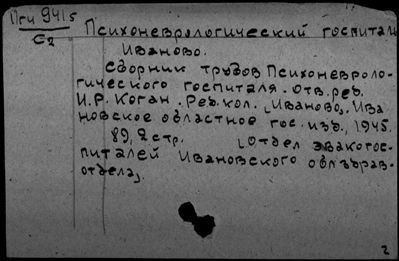 Пги 941/5
С2
Психоневрологический госпиталь
Иваново.
Сборник трудов Психоневроло-
гического госпиталя. Отв. ред.
И.Р. Коган. Ред. кол. Иваново, Ива
новское областное гос. изд., 1945.
89, 2 стр. [Отдел эвакогос-
питалей Ивановского облздрав-
отдела]
2